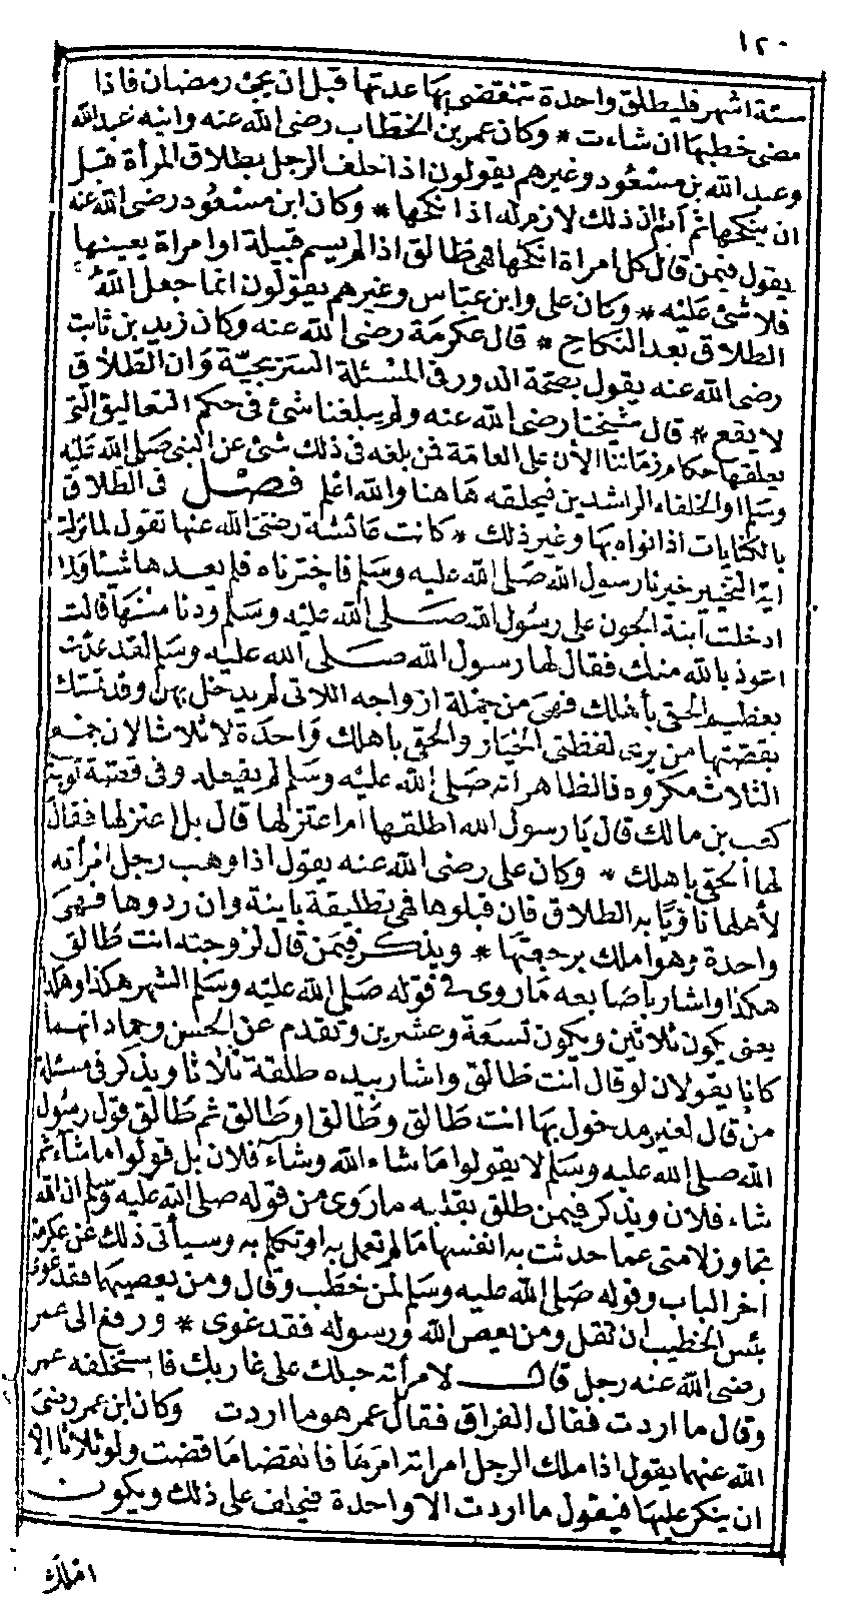 ١٢٠
ستة اشهر فليطلق واحدة تنقضى بها عدتها قبل ان يجئ رمضان فاذا
مضى خطبها ان شاءت * وكان عمر بن الخطاب رضى الله عنه وابنه عبد الله
وعبد الله بن مسعود وغيرهم يقولون اذا حلف الرجل بطلاق المرأة قبل
ان ينكحها ثم أثم ان ذلك لازم له اذا نكحها * وكان ابن مسعود رضى الله عنه
يقول فيمن قال كل امراة انكحها فهى طالق اذا لم يسم قبيلة او امراة بعينها
فلا شئ عليه * وكان على وابن عباس وغيرهم يقولون انما جعل الله
الطلاق بعد النكاح * قال عكرمة رضى الله عنه وكان زيد بن ثابت
رضى الله عنه يقول بصحة الدور فى المسئلة السريجية وان الطلاق
لا يقع * قال شيخنا رضى الله عنه ولم يبلغنا شئ فى حكم التعاليق التى
يعلقها حكام زماننا الأن على العامة فمن بلغه فى ذلك شئ عن النبى صلى الله عليه
وسلم او الخلفاء الراشدين فيلحقه هاهنا والله اعلم فصل فى الطلاق
بالكنايات اذا نواه بها وغير ذلك * كانت عائشة رضى الله عنها تقول لما نزلت
اية التخيير خيرنا رسول الله صلى الله عليه وسلم فاخترناه فلم يعدها شيئا ولما
ادخلت ابنة الجون على رسول الله صلى الله عليه وسلم ودنا منها قالت
اعوذ بالله منك فقال لها رسول الله صلى الله عليه وسلم لقد عذت
بعظيم الحقى بأهلك فهى من جملة ازواجه اللاتى لم يدخل بهن وقد تمسك
بقصتها من يرى لفظتى الخيار والحقى باهلك واحدة لا ثلاثا لان جمع
الثلاث مكروه فالظاهر أنه صلى الله عليه وسلم لم يفعله وفى قصة توبة
كعب بن مالك قال يا رسول الله اطلقها ام اعتزلها قال بل اعتزلها فقال
لها الحقى باهلك * وكان على رضى الله عنه يقول اذا وهب رجل امرأته
لأهلها ناويًا به الطلاق فان قبلوها فهى تطليقة باينة وان ردوها فهى
واحدة وهو املك برجعتها * ويذكر فيمن قال لزوجته انت طالق
هكذا واشار باصابعه ما روى فى قوله صلى الله عليه وسلم الشهر هكذا وهكذا
يعنى يكون ثلاثين ويكون تسعة وعشرين وتقدم عن الحسن وحماد انهما
كانا يقولان لو قال انت طالق واشار بيده طلقة ثلاثا ويذكر فى مسئلة
من قال لغير مدخول بها انت طالق وطالق او طالق ثم طالق قول رسول
الله صلى الله عليه وسلم لا يقولوا ما شاء الله وشاء فلان بل قولوا ما شاء ثم
شاء فلان ويذكر فيمن طلق بقلبه ما روى من قوله صلى الله عليه وسلم ان الله
تجاوز لامتى عما حدثت به انفسها ما لم تعمل به او تتكلم به وسيأتى ذلك عن عكرمة
اخر الباب وقوله صلى الله عليه وسلم لمن خطب وقال ومن يعصيهما فقد غوى
بئس الخطيب ان تقل ومن يعص الله ورسوله فقد غوى * ورفع الى عمر
رضى الله عنه رجل قال لامرأته حبلك على غاربك فاستحلفه عمر
وقال ما اردت فقال الفراق فقال عمر هو ما اردت وكان ابن عمر رضى
الله عنهما يقول اذا ملك الرجل امراته امرها فالقضا ما قضت ولو ثلاثا الا
ان ينكر عليها فيقول ما اردت الا واحدة فيحلف على ذلك ويكون
املك